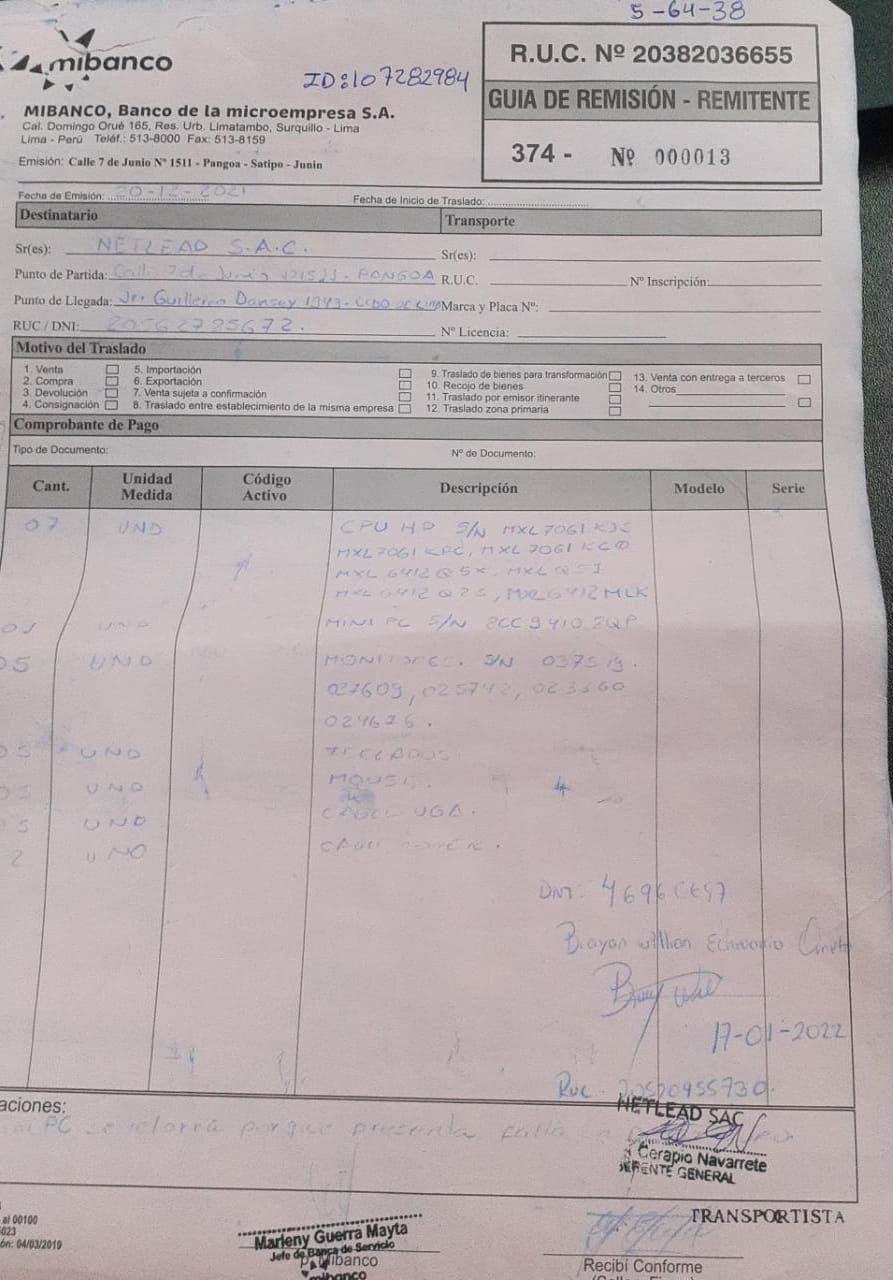 5-64-38
mibanco
ID:107282984
R.U.C. Nº 20382036655
GUIA DE REMISIÓN - REMITENTE
374 - Nº 000013
MIBANCO, Banco de la microempresa S.A.
Cal. Domingo Orué 165, Res. Urb. Limatambo, Surquillo - Lima
Lima - Perú Teléf.: 513-8000 Fax: 513-8159
Emisión: Calle 7 de Junio Nº 1511 - Pangoa - Satipo - Junin
Fecha de Emisión: 20-12-2021 Fecha de Inicio de Traslado:
Destinatario Transporte
Sr(es): NETLEAD S.A.C. Sr(es):
Punto de Partida: Calle 7 de Junio - PANGOA R.U.C. Nº Inscripción:
Punto de Llegada: Jr. Guillermo Dansey Marca y Placa Nº:
RUC / DNI: 20562795672. Nº Licencia:
Motivo del Traslado
1. Venta 5. Importación 9. Traslado de bienes para transformación 13. Venta con entrega a terceros
2. Compra 6. Exportación 10. Recojo de bienes 14. Otros
3. Devolución 7. Venta sujeta a confirmación 11. Traslado por emisor itinerante
4. Consignación 8. Traslado entre establecimiento de la misma empresa 12. Traslado zona primaria
Comprobante de Pago
Tipo de Documento: Nº de Documento:
Cant. Unidad Medida Código Activo Descripción Modelo Serie
07 UND CPU HP S/N MXL7061KJS
MXL7061KPC, MXL7061KC0
MXL6412Q5X, MXLQSJ
MXL6412Q2S, MXL6412MLK
01 UND MINI PC S/N 8CC94102QP
05 UND MONITORES. S/N 037519.
027609, 025742, 023360
024676.
05 UND TECLADOS
05 UND MOUSE.
5 UND CABLE VGA.
2 UND CABLE
DNI:
Brayan Willian
17-01-2022
Ruc. 20520955730
aciones:
PC se retorna porque presenta falla
NETLEAD SAC
Cerapio Navarrete
GERENTE GENERAL
al 00100
023
ón: 04/03/2019
Marleny Guerra Mayta
Jefe de Banca de Servicio
p. Mibanco
mibanco
TRANSPORTISTA
Recibí Conforme